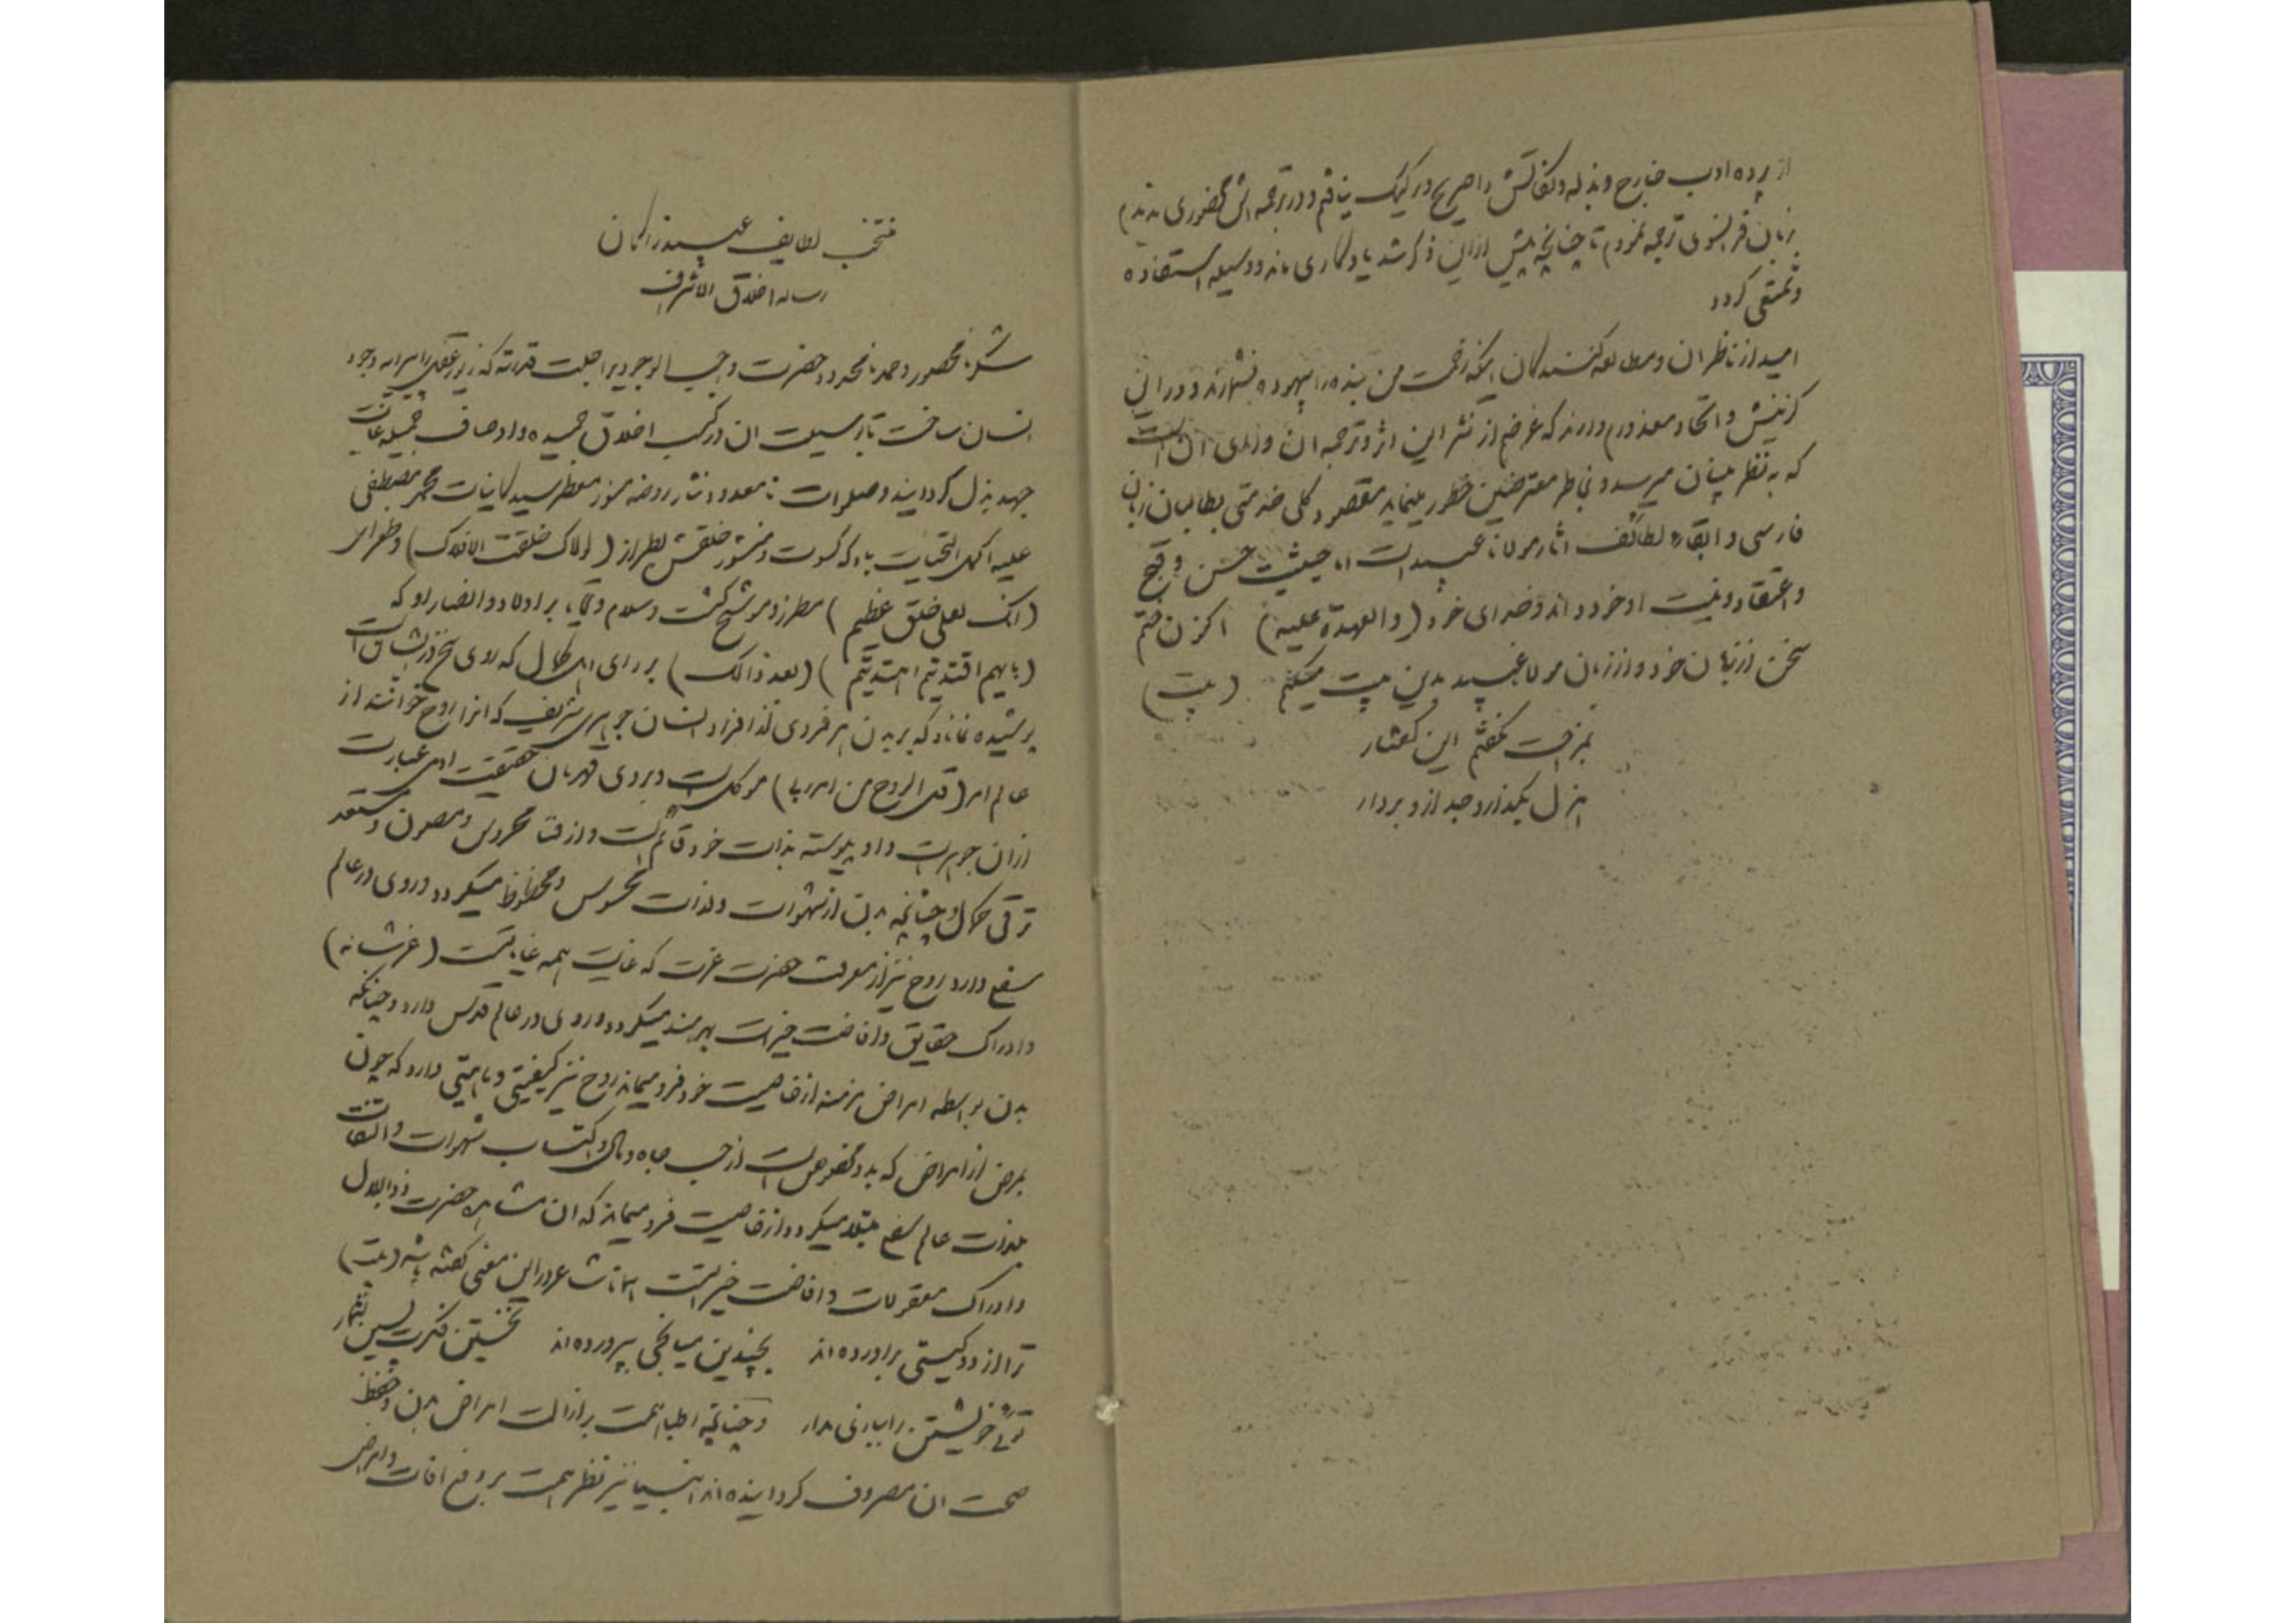 از پرده ادب خارج و بذله و نکاتش را صریح و رکیک نیافتم و در ترجمه اش محذوری ندیدم
بزبان فرانسوی ترجمه نمودم تا چنانچه پیش ازاین ذکر شد یادکاری ماند و وسیله استفاده
و تمتعی کردد
امید از ناظران و مطالعه کنندکان اینکه زحمت من بنده را بیهوده نشمارند و در این
کزینش و اتحاد معذورم دارند که غرضم از نشر این اثر و ترجمه ان ورای ان است
که به نظر عیان میرسد و بخاطر معترضین خطور مینماید مقصود کلی خدمتی بطالبان زبان
فارسی و ابقاء لطائف اثار مولانا عبید است اما حیثیت حسن و قبح
و اعتقاد و نیت او خود داند و خدای خود (والعهدة علیه) اکنون ختم
سخن از زبان خود و از زبان مولانا عبید بدین بیت میکنم (بیت)
بمزاحت نکفتم این کفتار
هزل بکذار و جد ازو بردار
منتخب لطایف عبید زاکان
رساله اخلاق الاشراف
شکر نامحصور و حمد نامحدود حضرت واجب الوجودیرا جلت قدرته که زیور عقل را پیرایه وجود
انسان ساخت تا بوسیلت ان در کسب اخلاق حمیده و اوصاف جمیله غایت
جهد مبذول کرداینید و صلوات نامعدود نثار روضه منور معطر سید کاینات محمد مصطفی
علیه اکمل التحیات باد که کسوت و منشور خلقتش بطراز (لولاک خلقت الافلاک) و طغرای
(انک لعلی خلق عظیم) مطرز و موشح کشت و سلام و تحایا بر اولاد و انصار او که
(بایهم اقتدیتم اهتدیتم) (بعد ذالک) بر رای اهل کمال که روی سخن در ایشان است
پوشیده نماند که بر بدن هر فردی از افراد انسان جوهری شریف که انرا روح خوانند از
عالم امر (قل الروح من امر ربی) موکل است و بروی قهرمان حقیقت ادمی عبارت
ازان جوهر است و او پیوسته بذات خود قائم است و از فنا محروس و مصون و مستعد
ترقی کمال و چنانچه بدن از شهوات و لذات محسوس و محظوظ میکردد و روی در عالم
سفلی دارد روح نیز از معرفت حضرت عزت که غایت همه غایاتست (عز شانه)
و ادراک حقایق و افاضت خیرات بهرمند میکردد و روی در عالم قدس دارد و چنانکه
بدن بواسطه امراض مزمنه از خاصیت خود فرو میماند روح نیز کیفیتی و ماهیتی دارد که چون
بمرض از امراض که بدو مخصوص است از حب جاه و مال و اکتساب شهوات و التفات
بلذات عالم سفلی مبتلا میکردد از خاصیت فرو میماند که ان مشاهده حضرت ذوالجلال
و ادراک معقولات و افاضت خیراتست همانا شاعر در این معنی کفته باشد (بیت)
ترا از دو کیتی براورده اند بچندین میانجی بپرورده اند نخستین فکرت پسین شمار
توئی خویشتن را ببازی مدار و چنانچه اطبا همت بر ازالت امراض بدن و حفظ
صحت ان مصروف کردانیده اند انبیا نیز نظر همت بر دفع افات و امراض